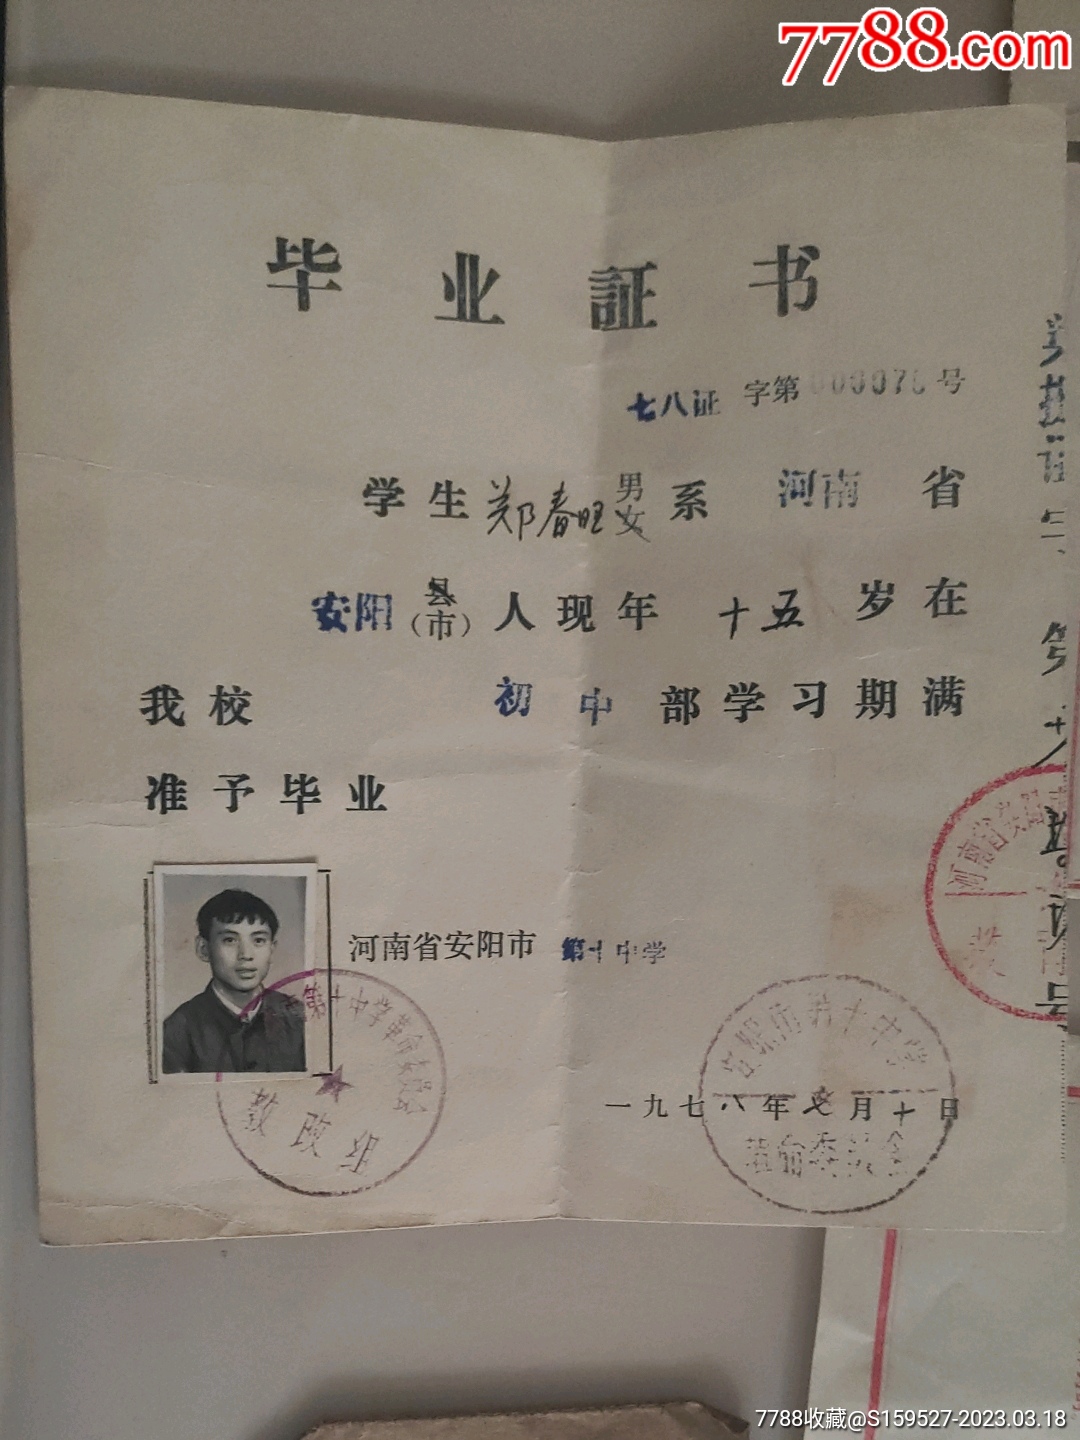 7788.com
毕业証书
七八证字第000075号
学生郑春旺男女系河南省
安阳县（市）人现年十五岁在
我校初中部学习期满
准予毕业
河南省安阳市第十中学
第十中学革命委员会
教改组
第十中学
革命委员会
一九七八年七月十日
河南省安阳市
7788收藏@S159527-2023.03.18